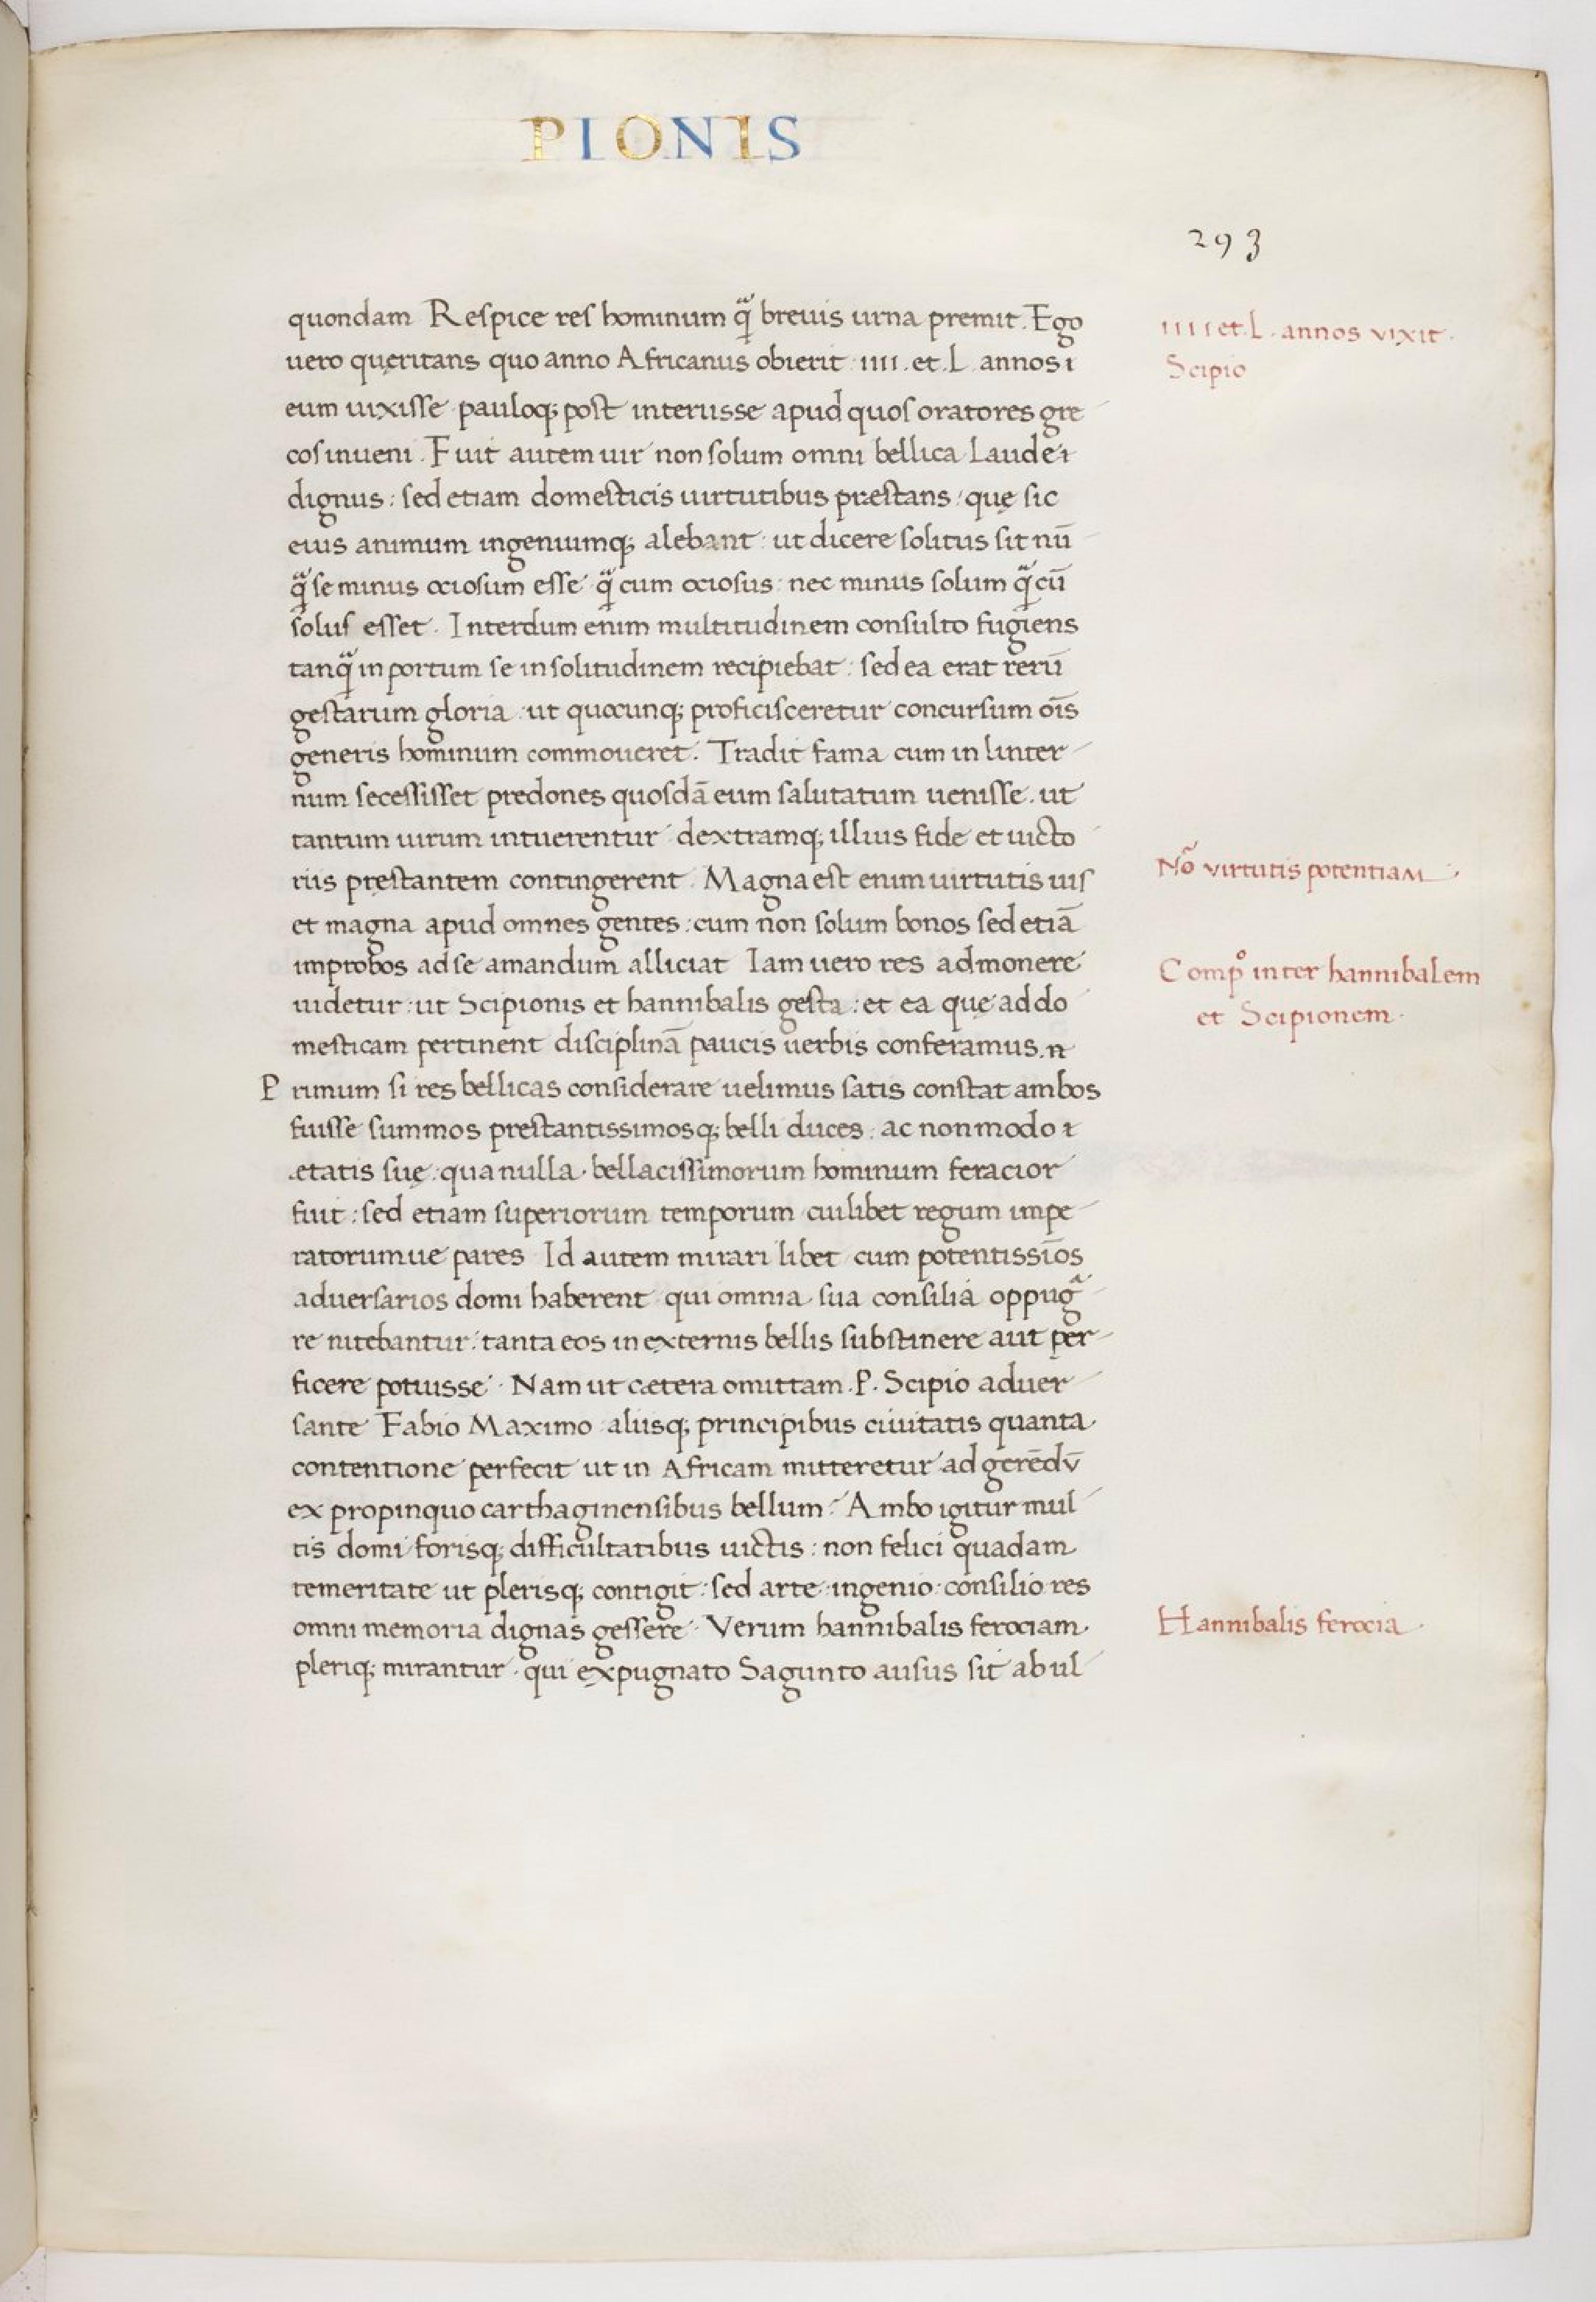 PIONIS
293
quondam Respice res hominum q̃ breuis urna premit. Ego
uero quęritans quo anno Africanus obierit · IIII. et. L. annos
eum uixisse pauloq; post interiisse apud quos oratores gre
cos inueni. Fuit autem uir non solum omni bellica laude
dignus : sed etiam domesticis uirtutibus præstans : quę sic
eius animum ingeniumq; alebant : ut dicere solitus sit nū
q̃ se minus ociosum esse q̃ cum ociosus : nec minus solum q̃ cū
solus esset. Interdum enim multitudinem consulto fugiens
tanq̃ in portum se in solitudinem recipiebat : sed ea erat rerū
gestarum gloria : ut quocunq; proficisceretur concursum oīs
generis hominum commoueret. Tradit fama cum in linter
num secessisset predones quosdā eum salutatum uenisse. ut
tantum uirum intuerentur dextramq; illius fide et uicto
riis pręstantem contingerent. Magna est enim uirtutis uis
et magna apud omnes gentes : cum non solum bonos sed etiā
improbos ad se amandum alliciat Iam uero res admonere
uidetur : ut Scipionis et hannibalis gesta : et ea quę ad do
mesticam pertinent disciplinā paucis uerbis conferamus.
Primum si res bellicas considerare uelimus satis constat ambos
fuisse summos prestantissimosq; belli duces : ac non modo
ætatis suę : qua nulla bellacissimorum hominum feracior
fuit : sed etiam superiorum temporum cuilibet regum impe
ratorumue pares Id autem mirari libet cum potentissīos
aduersarios domi haberent qui omnia sua consilia oppugᵃ
re nitebantur : tanta eos in externis bellis substinere aut per
ficere potuisse · Nam ut cætera omittam. P. Scipio aduer
sante Fabio Maximo aliisq; principibus ciuitatis quanta
contentione perfecit ut in Africam mitteretur ad gerēdū
ex propinquo carthaginensibus bellum : Ambo igitur mul
tis domi forisq; difficultatibus uictis : non felici quadam
temeritate ut plerisq; contigit : sed arte : ingenio : consilio res
omni memoria dignas gessere · Verum hannibalis ferociam
pleriq; mirantur · qui expugnato Sagunto ausus sit ab ul
IIII et. L. annos vixit.
Scipio
Nõ virtutis potentiam
Compº inter hannibalem
et Scipionem.
Hannibalis ferocia